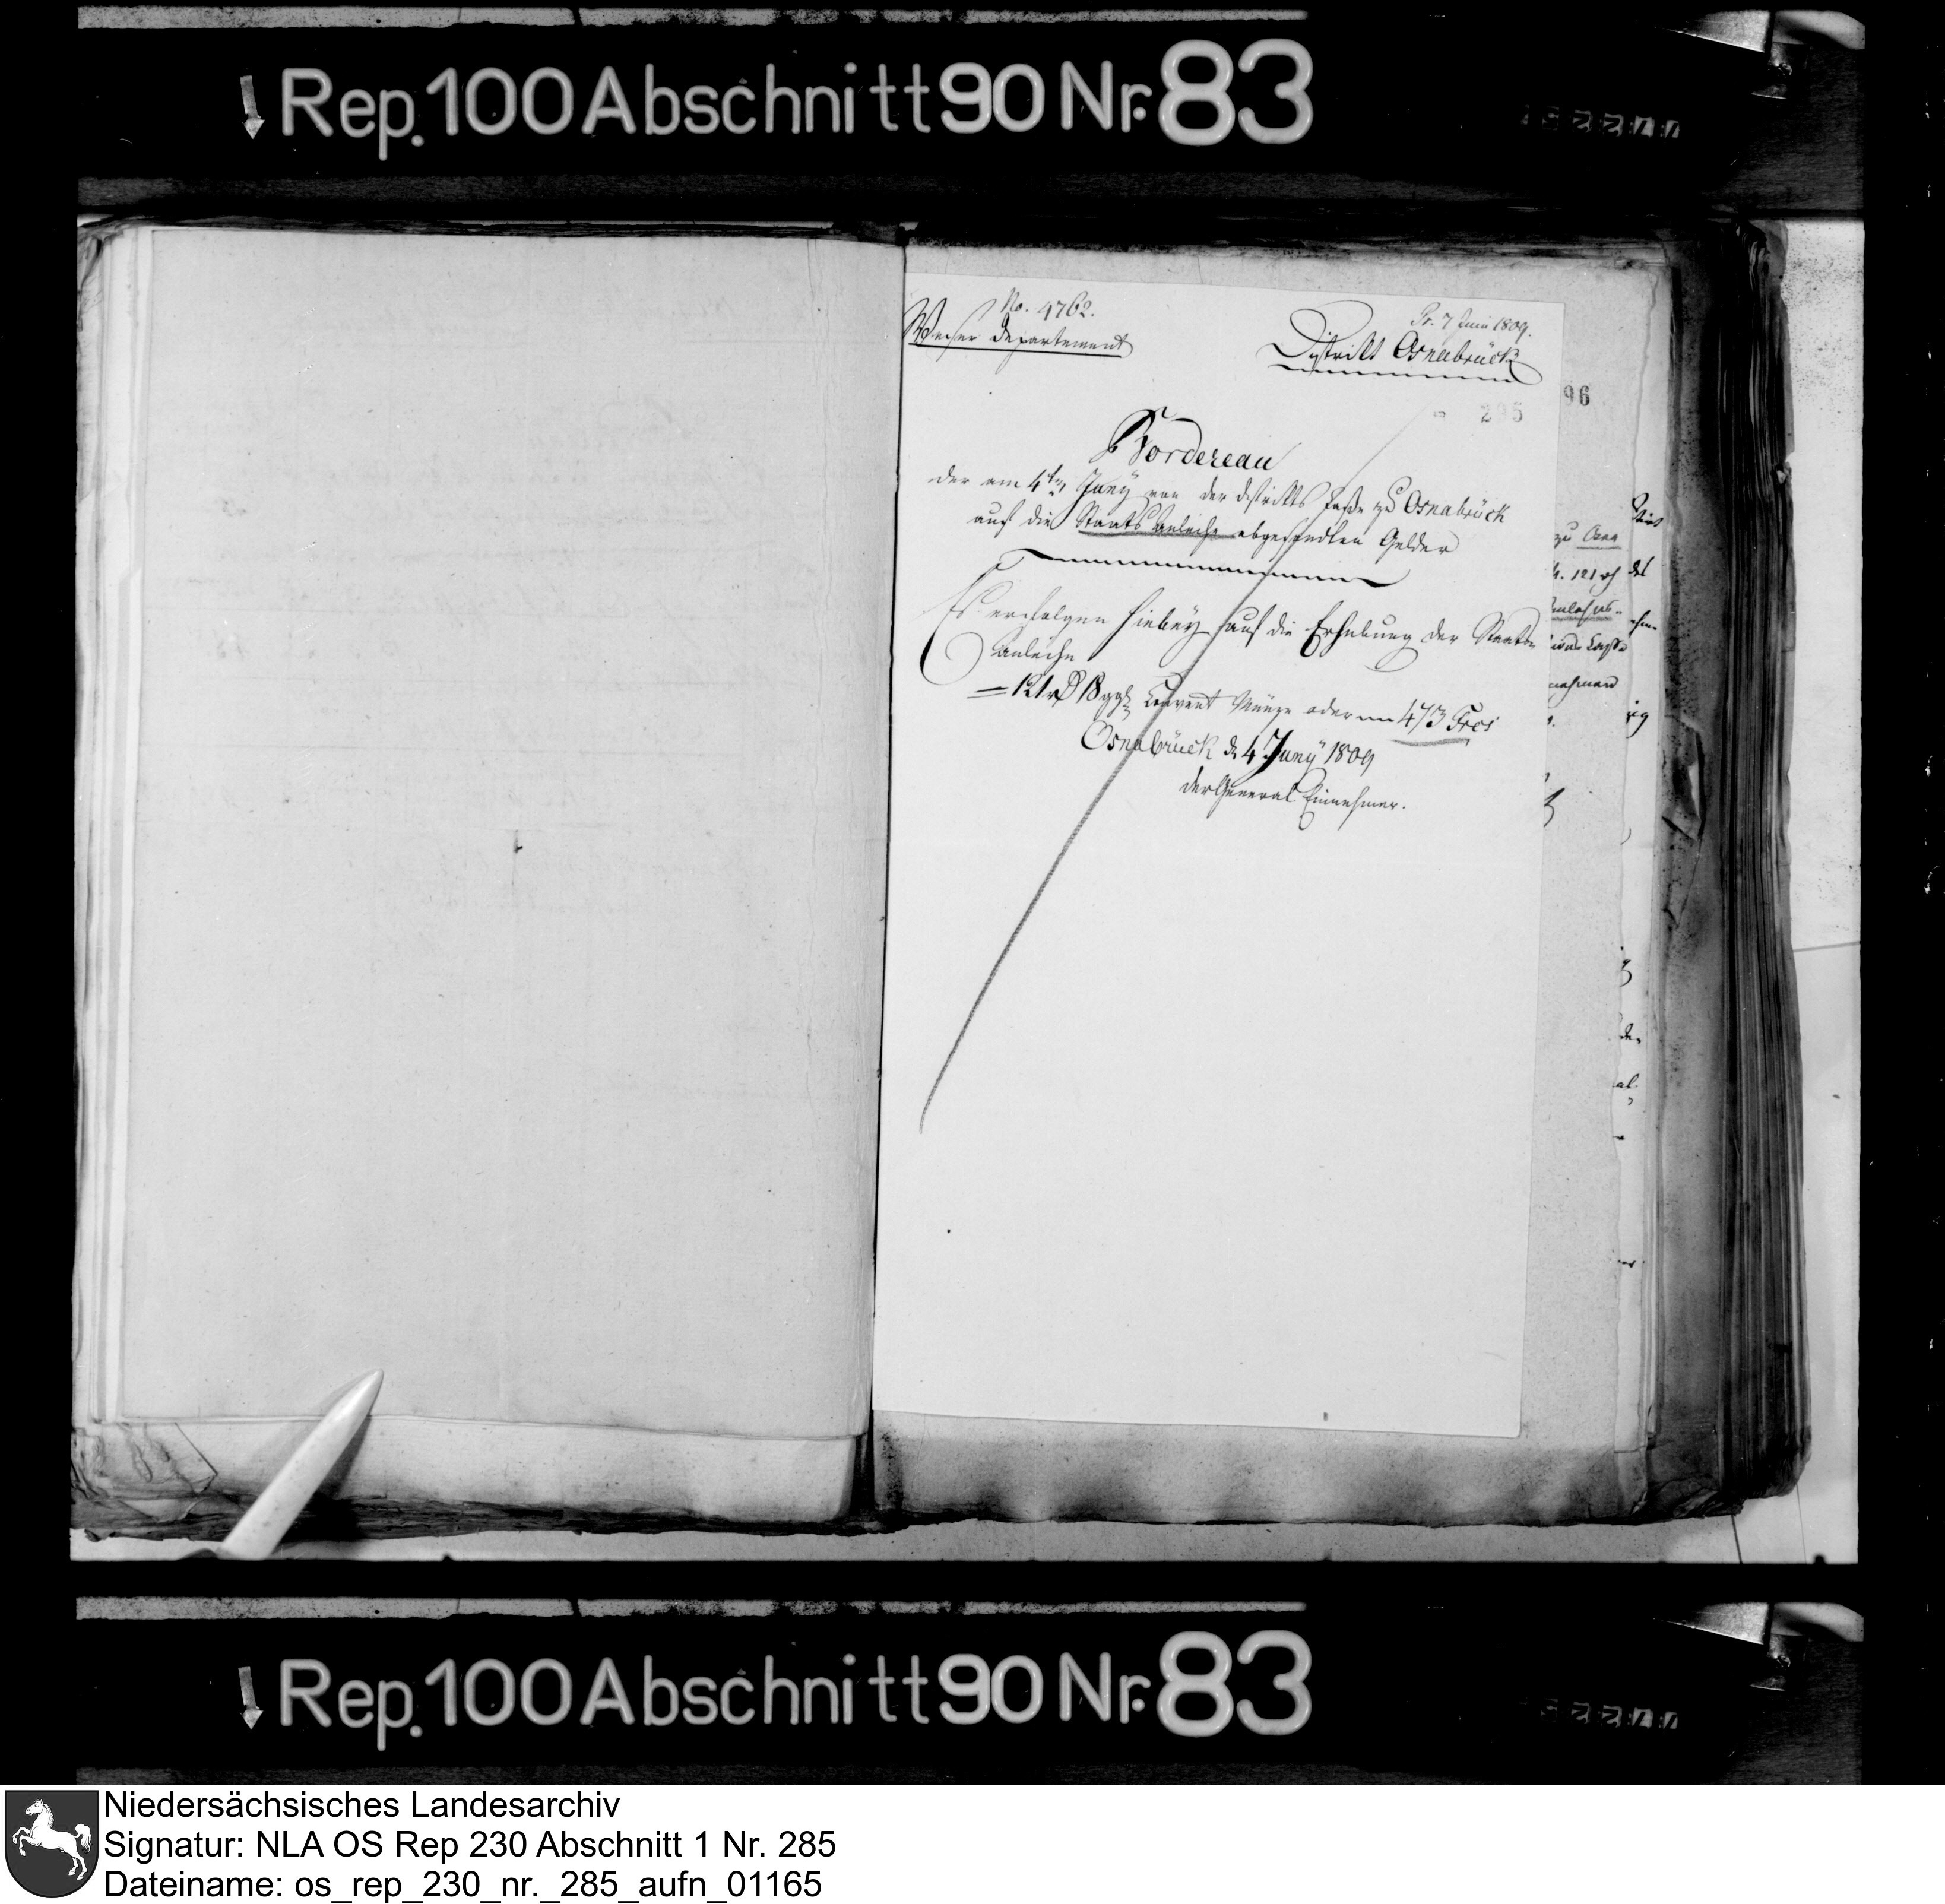 Rep. 100 Abschnitt 90 Nr. 83
No. 4762.
Weser Departement
Pr. 7 Juni 1809.
Distrikt Osnabrück
96
295
Bordereau
der am 4ten Juny von der distrikts Casse zu Osnabrück
auf die Staats Anleihe abgesandten Gelder
Es erfolgen hiebey auf die Erhebung der Staats
Anleihe
= 121 rt 18 ggr Convent Münze oder 473 Frcs
Osnabrück d 4 Juny 1809
der General Einnehmer.
zu Osna
121
des
Rep. 100 Abschnitt 90 Nr. 83
Niedersächsisches Landesarchiv
Signatur: NLA OS Rep 230 Abschnitt 1 Nr. 285
Dateiname: os_rep_230_nr._285_aufn_01165